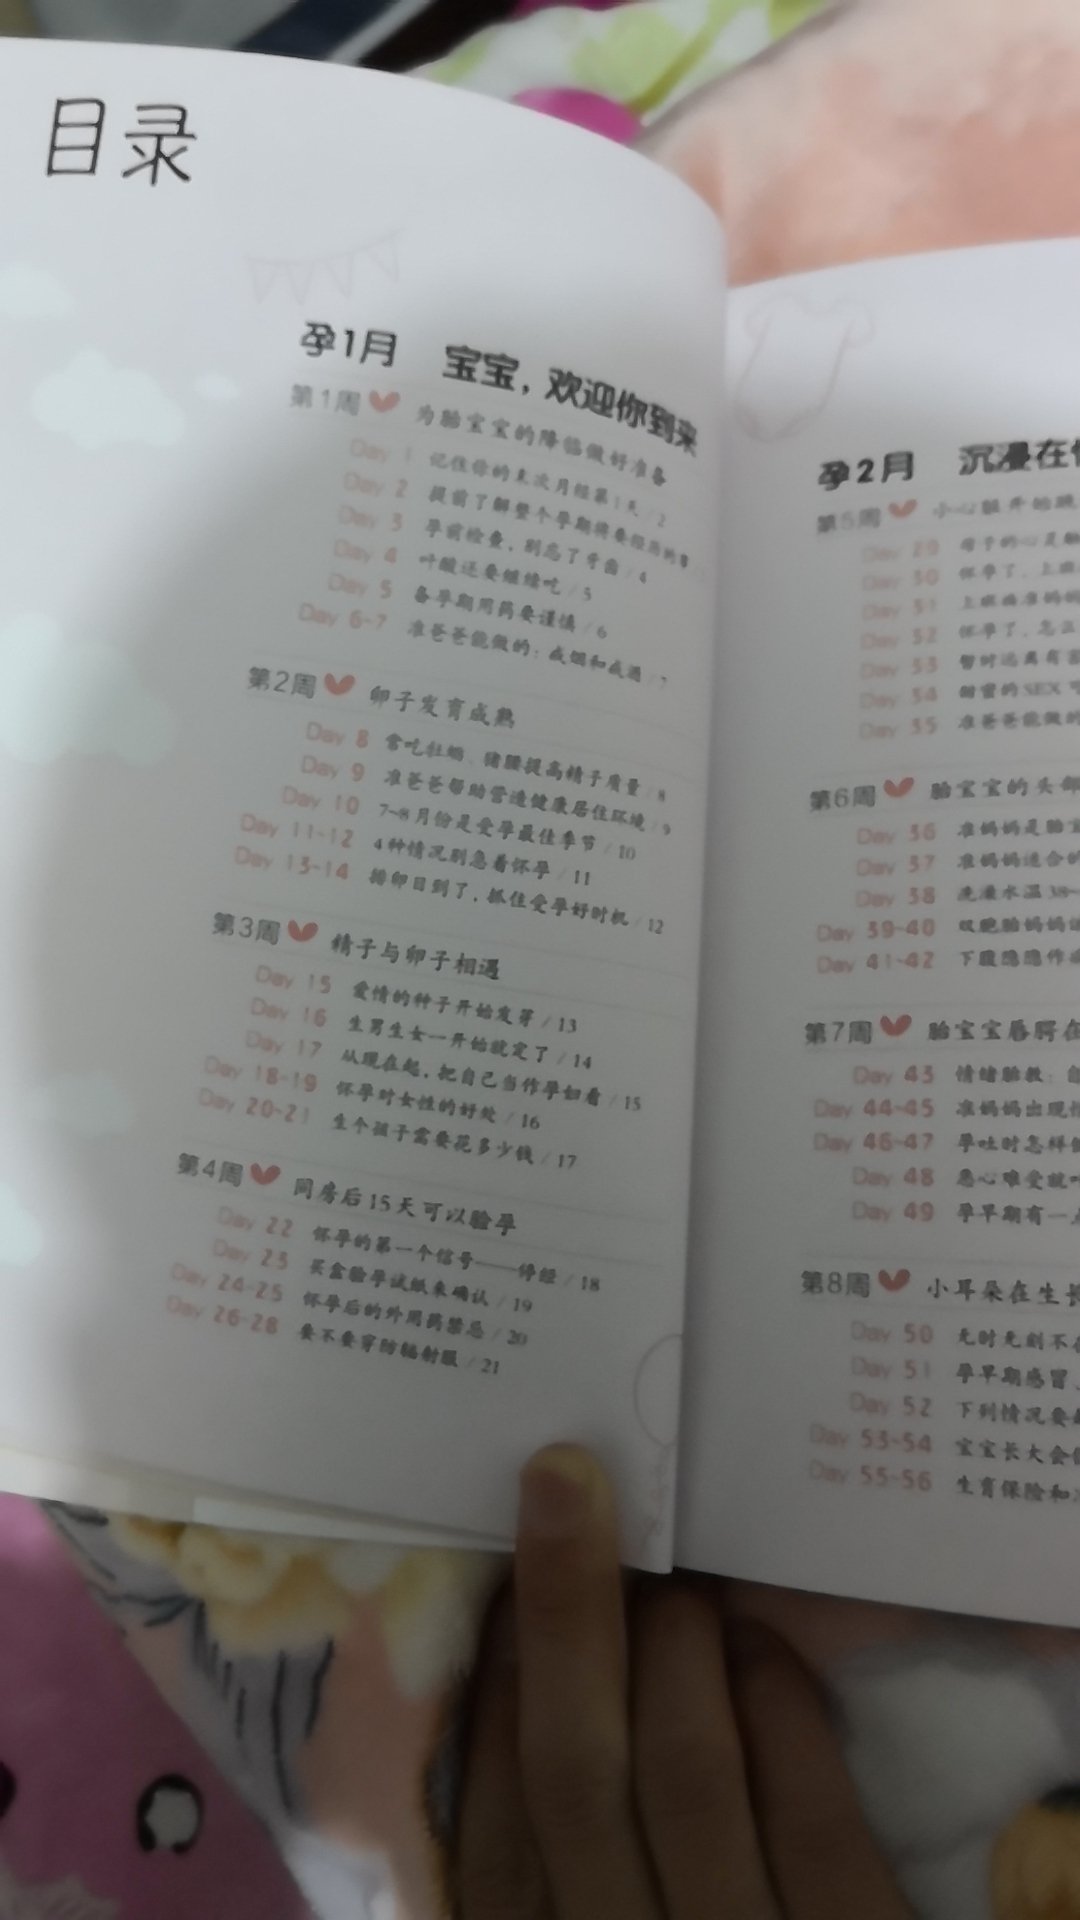 目录
孕1月 宝宝，欢迎你到来
第1周 为胎宝宝的降临做好准备
Day 1 记住你的末次月经第1天 / 2
Day 2 提前了解整个孕期将要经历的事
Day 3 孕前检查，别忘了牙齿 / 4
Day 4 叶酸还要继续吃 / 5
Day 5 备孕期用药要谨慎 / 6
Day 6-7 准爸爸能做的：戒烟和戒酒 / 7
第2周 卵子发育成熟
Day 8 常吃牡蛎、猪腰提高精子质量 / 8
Day 9 准爸爸帮助营造健康居住环境 / 9
Day 10 7~8月份是受孕最佳季节 / 10
Day 11-12 4种情况别急着怀孕 / 11
Day 13-14 排卵日到了，抓住受孕好时机 / 12
第3周 精子与卵子相遇
Day 15 爱情的种子开始发芽 / 13
Day 16 生男生女一开始就定了 / 14
Day 17 从现在起，把自己当作孕妇看 / 15
Day 18-19 怀孕对女性的好处 / 16
Day 20-21 生个孩子需要花多少钱 / 17
第4周 同房后15天可以验孕
Day 22 怀孕的第一个信号——停经 / 18
Day 23 买盒验孕试纸来确认 / 19
Day 24-25 怀孕后的外用药禁忌 / 20
Day 26-28 要不要穿防辐射服 / 21
孕2月 沉浸在
第5周 小心脏开始跳
Day 29 母子的心灵
Day 30 怀孕了，上班
Day 31 上班族准妈妈
Day 32 怀孕了，怎么
Day 33 暂时远离有害
Day 34 甜蜜的SEX
Day 35 准爸爸能做的
第6周 胎宝宝的头部
Day 36 准妈妈是胎宝
Day 37 准妈妈适合的
Day 38 洗澡水温38~
Day 39-40 双胞胎妈妈
Day 41-42 下腹隐隐作
第7周 胎宝宝唇腭在
Day 43 情绪胎教：
Day 44-45 准妈妈出现
Day 46-47 孕吐时怎样
Day 48 恶心难受就
Day 49 孕早期有一
第8周 小耳朵在生长
Day 50 无时无刻不在
Day 51 孕早期感冒
Day 52 下列情况要
Day 53-54 宝宝长大会
Day 55-56 生育保险和